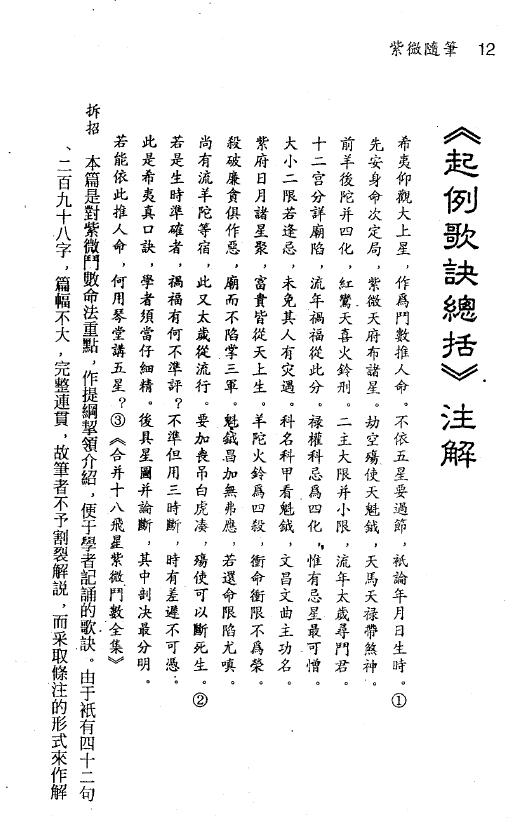 紫微隨筆 12
《起例歌訣總括》注解
希夷仰觀大上星，作爲鬥數推人命。不依五星要過節，衹論年月日生時。①
先安身命次定局，紫微天府布諸星。劫空殤使天魁鉞，天馬天禄帶煞神。
前羊後陀并四化，紅鸞天喜火鈴刑。二主大限并小限，流年太歲尋門君。
十二宫分詳廟陷，流年禍福從此分。禄權科忌爲四化，惟有忌星最可憎。
大小二限若逢忌，未免其人有灾遇。科名科甲看魁鉞，文昌文曲主功名。
紫府日月諸星聚，富貴皆從天上生。羊陀火鈴爲四殺，衝命衝限不爲榮。
殺破廉貪俱作惡，廟而不陷掌三軍。魁鉞昌加無弗應，若還命限陷尤嗔。
尚有流羊陀等宿，此又太歲從流行。要加喪吊白虎凑，殤使可以斷死生。②
若是生時準確者，禍福有何不準評？不準但用三時斷，時有差遲不可憑。
此是希夷真口訣，學者須當仔細精。後具星圖并論斷，其中剖决最分明。
若能依此推人命，何用琴堂講五星？③《合并十八飛星紫微鬥數全集》
拆招 本篇是對紫微鬥數命法重點，作提綱挈領介紹，便于學者記誦的歌訣。由于衹有四十二句
、二百九十八字，篇幅不大，完整連貫，故筆者不予割裂解説，而采取條注的形式來作解